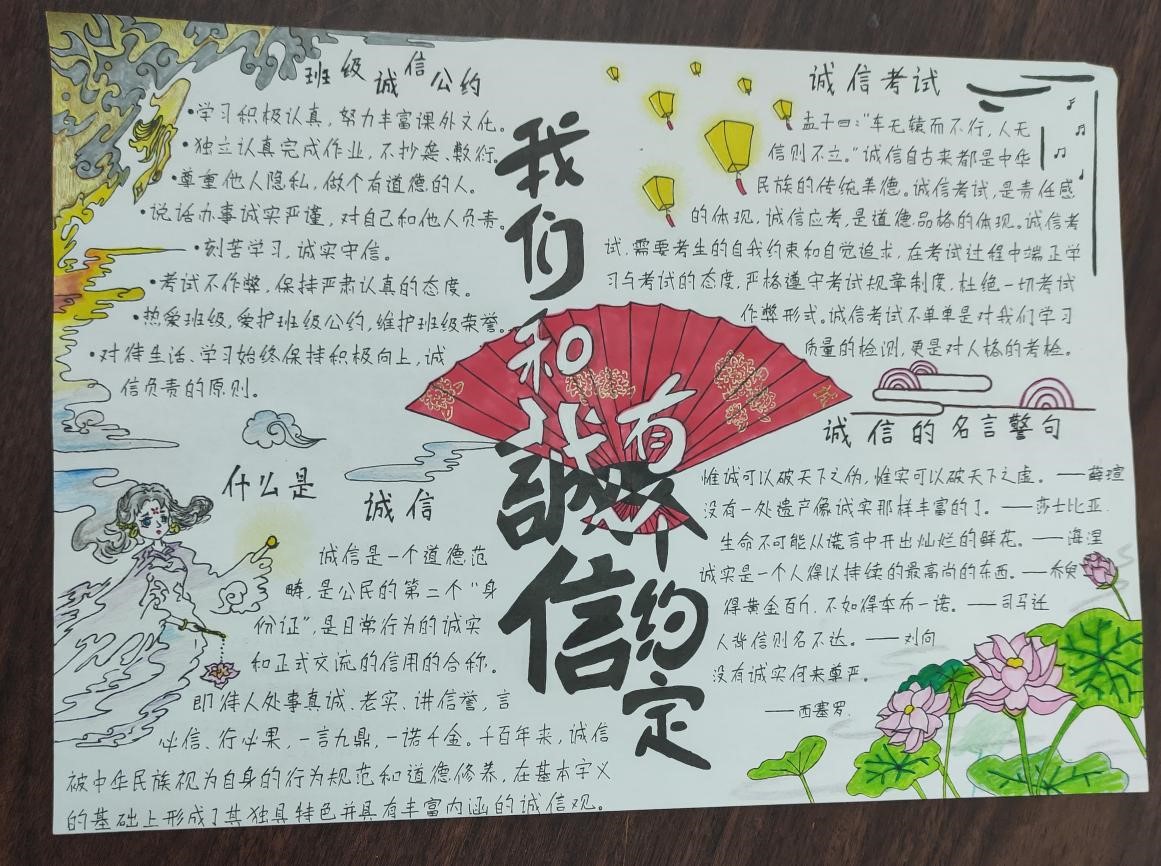 班级诚信公约
•学习积极认真，努力丰富课外文化。
•独立认真完成作业，不抄袭、敷衍。
•尊重他人隐私，做个有道德的人。
•说话办事诚实严谨，对自己和他人负责。
•刻苦学习，诚实守信。
•考试不作弊，保持严肃认真的态度。
•热爱班级，爱护班级公约，维护班级荣誉。
•对待生活、学习始终保持积极向上，诚
信负责的原则。
什么是
诚信
诚信是一个道德范
畴，是公民的第二个“身
份证”，是日常行为的诚实
和正式交流的信用的合称。
即待人处事真诚、老实、讲信誉，言
必信、行必果，一言九鼎，一诺千金。千百年来，诚信
被中华民族视为自身的行为规范和道德修养，在基本字义
的基础上形成了其独具特色并具有丰富内涵的诚信观。
我们和誠信
有个约定
诚信考试
孟子曰：“车无辕而不行，人无
信则不立。”诚信自古来都是中华
民族的传统美德。诚信考试，是责任感
的体现，诚信应考，是道德品格的体现。诚信考
试，需要考生的自我约束和自觉追求，在考试过程中端正学
习与考试的态度，严格遵守考试规章制度，杜绝一切考试
作弊形式。诚信考试不单单是对我们学习
质量的检测，更是对人格的考检。
诚信的名言警句
惟诚可以破天下之伪，惟实可以破天下之虚。——薛瑄
没有一处遗产像诚实那样丰富的了。——莎士比亚.
生命不可能从谎言中开出灿烂的鲜花。——海涅
诚实是一个人得以持续的最高尚的东西。——乔叟
得黄金百斤，不如得季布一诺。——司马迁
人背信则名不达。——刘向
没有诚实何来尊严。
——西塞罗.